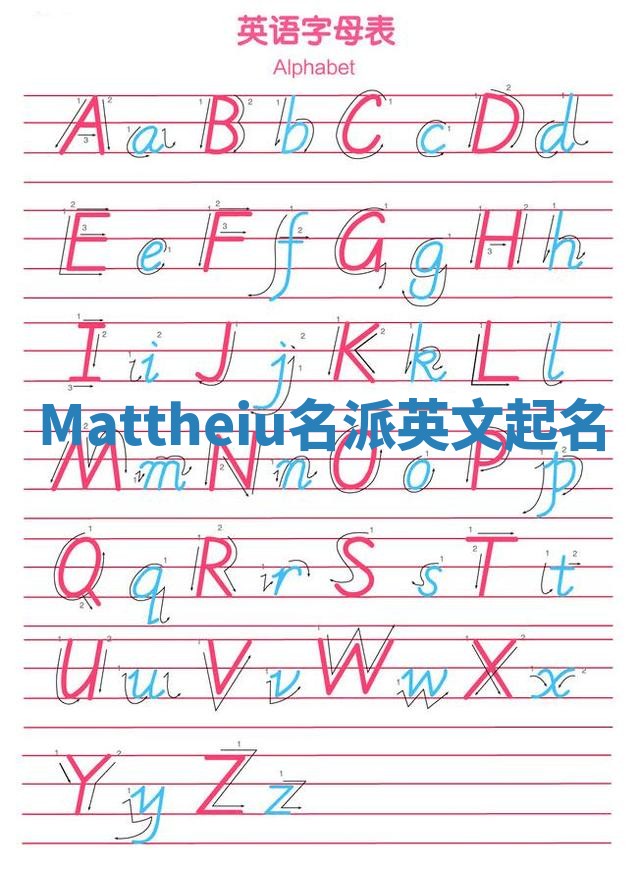 英语字母表
Alphabet
A a B b C c D d
E e F f G g H h
I i J j K k L l
Mattheiu名派英文起名
M m N n O o P p
Q q R r S s T t
U u V v W w X x
Y y Z z